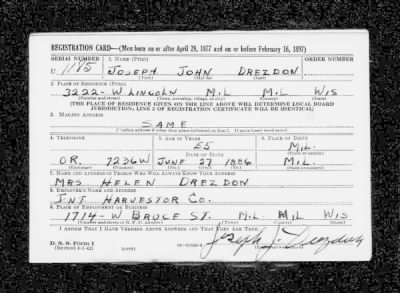 REGISTRATION CARD—(Men born on or after April 28, 1877 and on or before February 16, 1897)
SERIAL NUMBER 1. NAME (Print) ORDER NUMBER
U. 1185 JOSEPH JOHN DREZDON
(First) (Middle) (Last)
2. PLACE OF RESIDENCE (Print)
3222-W LINCOLN MIL MIL WIS
(Number and street) (Town, township, village, or city) (County) (State)
[THE PLACE OF RESIDENCE GIVEN ON THE LINE ABOVE WILL DETERMINE LOCAL BOARD
JURISDICTION; LINE 2 OF REGISTRATION CERTIFICATE WILL BE IDENTICAL]
3. MAILING ADDRESS
SAME
[Mailing address if other than place indicated on line 2. If same insert word same]
4. TELEPHONE 5. AGE IN YEARS 6. PLACE OF BIRTH
55 MIL.
DATE OF BIRTH
OR. 7236W JUNE 27 1886 MIL.
(Exchange) (Number) (Mo.) (Day) (Yr.) (State or country)
7. NAME AND ADDRESS OF PERSON WHO WILL ALWAYS KNOW YOUR ADDRESS
MRS HELEN DREZDON
8. EMPLOYER'S NAME AND ADDRESS
INT HARVESTOR CO.
9. PLACE OF EMPLOYMENT OR BUSINESS
1714-W BRUCE ST. MIL MIL WIS
(Number and street or R. F. D. number) (Town) (County) (State)
I AFFIRM THAT I HAVE VERIFIED ABOVE ANSWERS AND THAT THEY ARE TRUE.
D. S. S. Form 1
(Revised 4-1-42) (over) Joseph J.